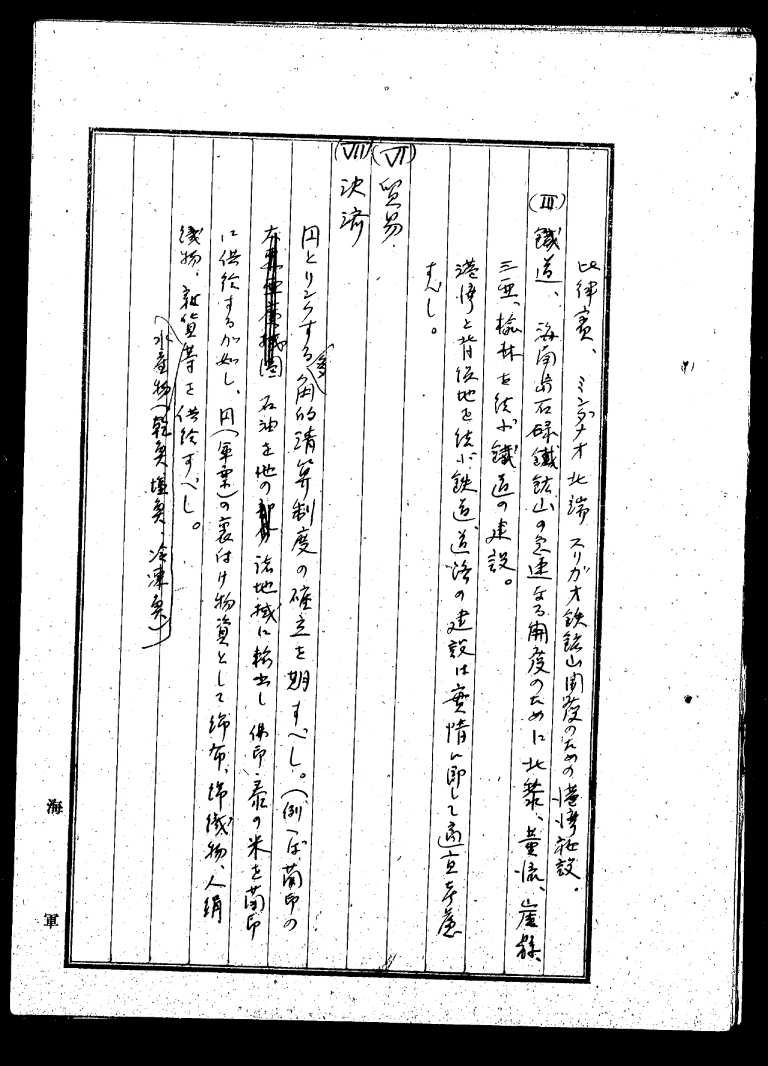 比律賓、ミンダナオ北端スリガオ鉄鉱山開発のための港湾施設。
(Ⅲ) 鐵道、海南島石碌鐵鉱山の急速なる開発のために北黎、
三亜、楡林を結ぶ鐵道の建設。
港湾と背後地を結ぶ鉄道、道路の建設は実情に即して適宜考慮
すべし。
(Ⅵ) 貿易、
(Ⅶ) 決済
円とリンクする多角的清算制度の確立を期すべし。(例へば蘭印の
石油を他の諸地域に輸出し佛印・泰の米を蘭印
に供給するが如し、円(軍票)の裏付け物資として綿布、綿織物、人絹
織物、雑貨等を供給すべし。
水産物(乾魚、塩魚、冷凍魚)
海軍